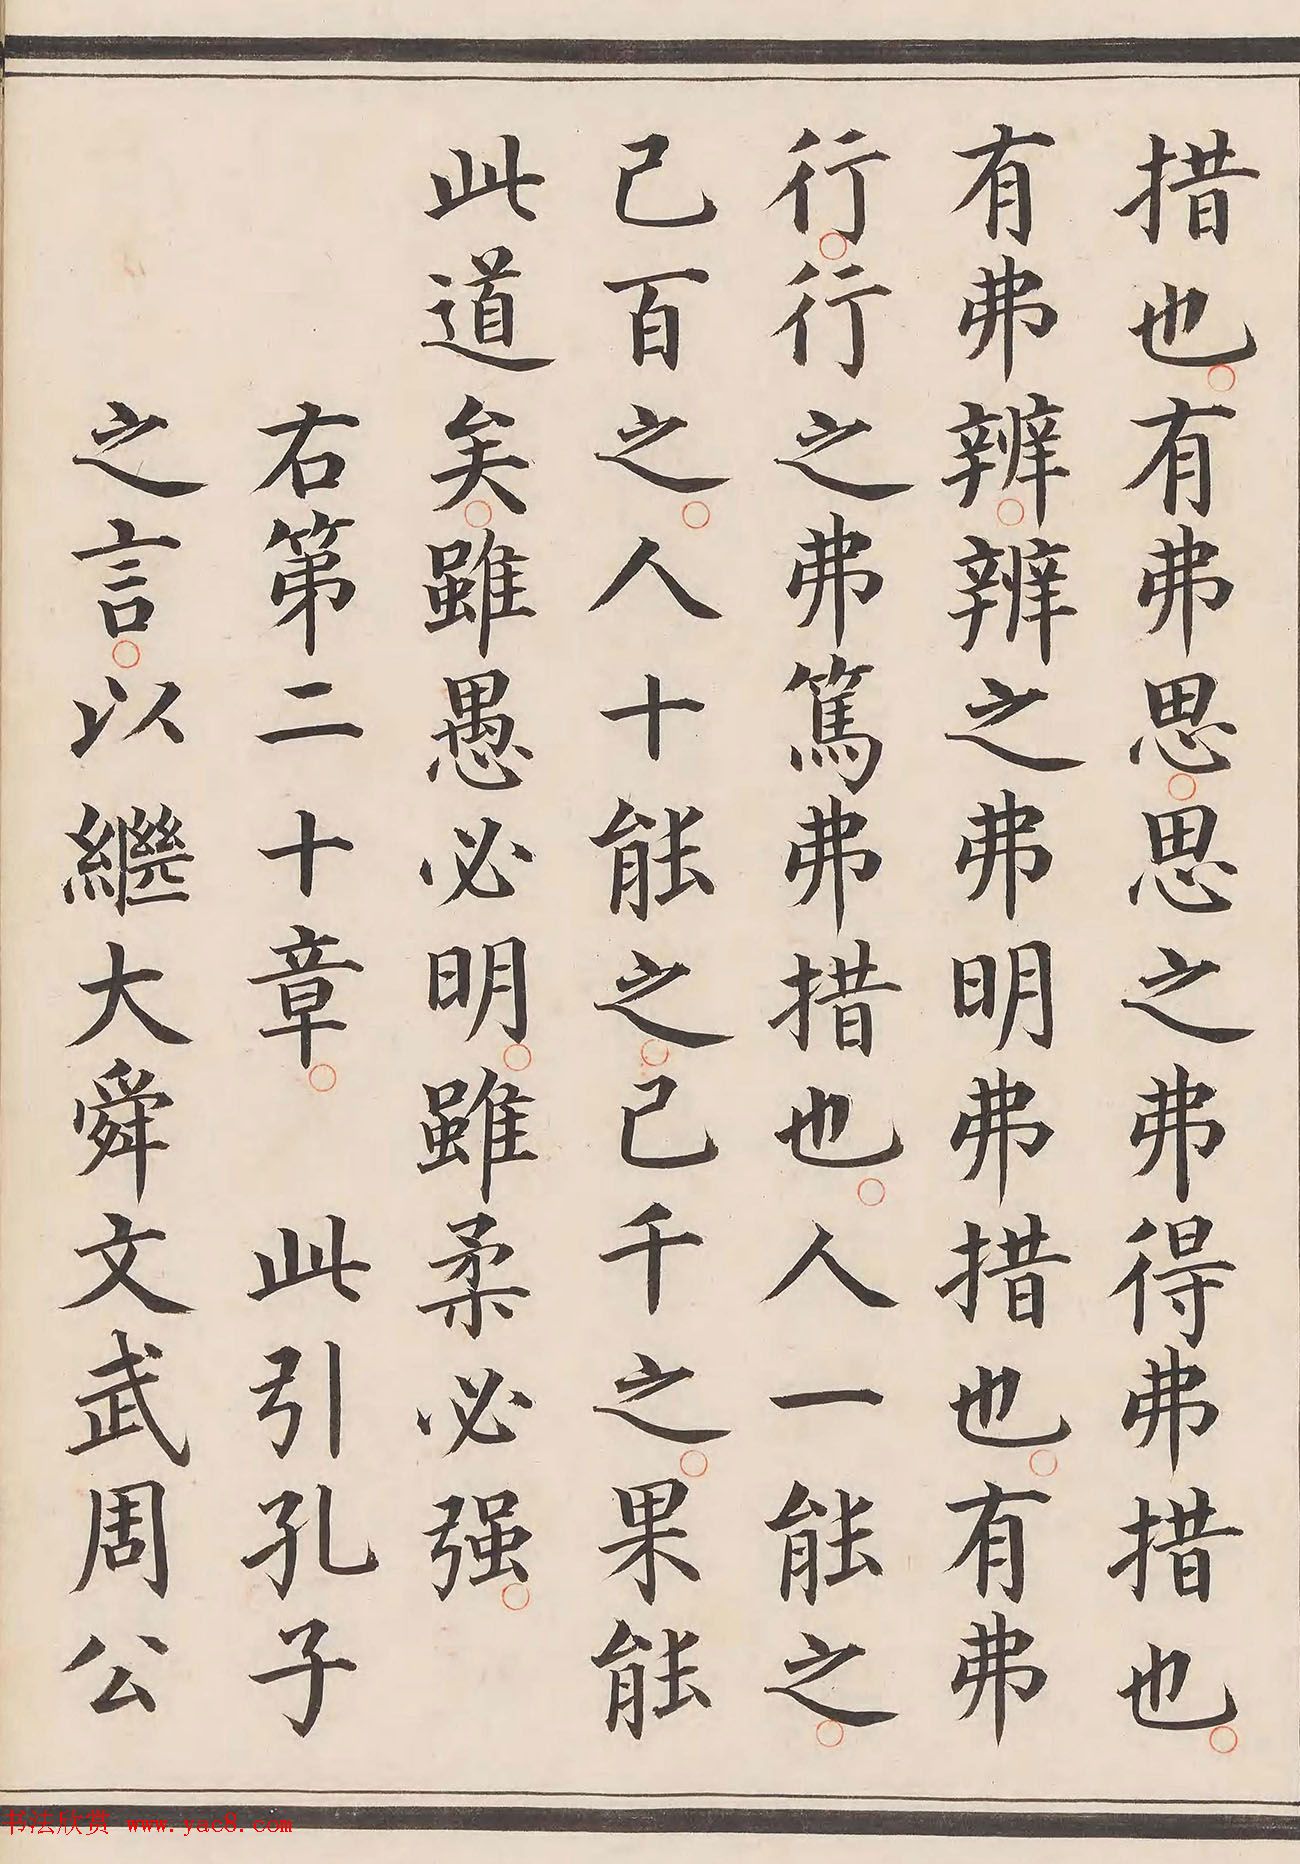 措也。有弗思。思之弗得弗措也。
有弗辨。辨之弗明弗措也。有弗
行。行之弗篤弗措也。人一能之。
己百之。人十能之。己千之。果能
此道矣。雖愚必明。雖柔必强。
右第二十章。 此引孔子
之言。以繼大舜文武周公
书法欣赏 www.yac8.com